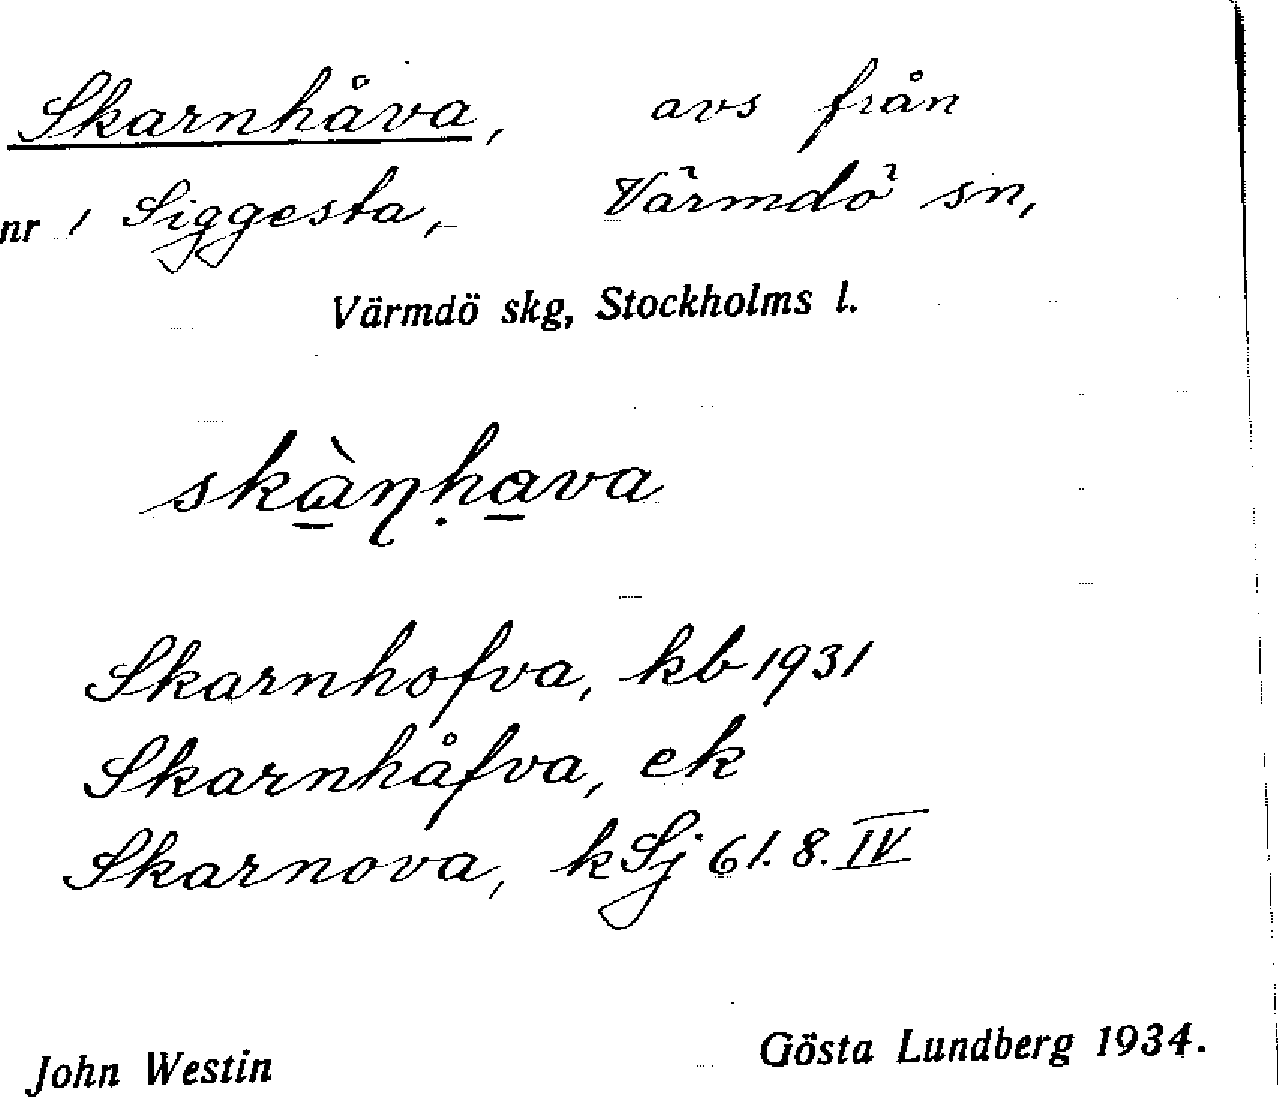 Skarnhåva, avs från
nr 1 Siggesta, Värmdö sn,
Värmdö skg, Stockholms l.
skàn̥hava
Skarnhofva, kb 1931
Skarnhåfva, ek
Skarnova, kSj 61.8.IV
John Westin Gösta Lundberg 1934.